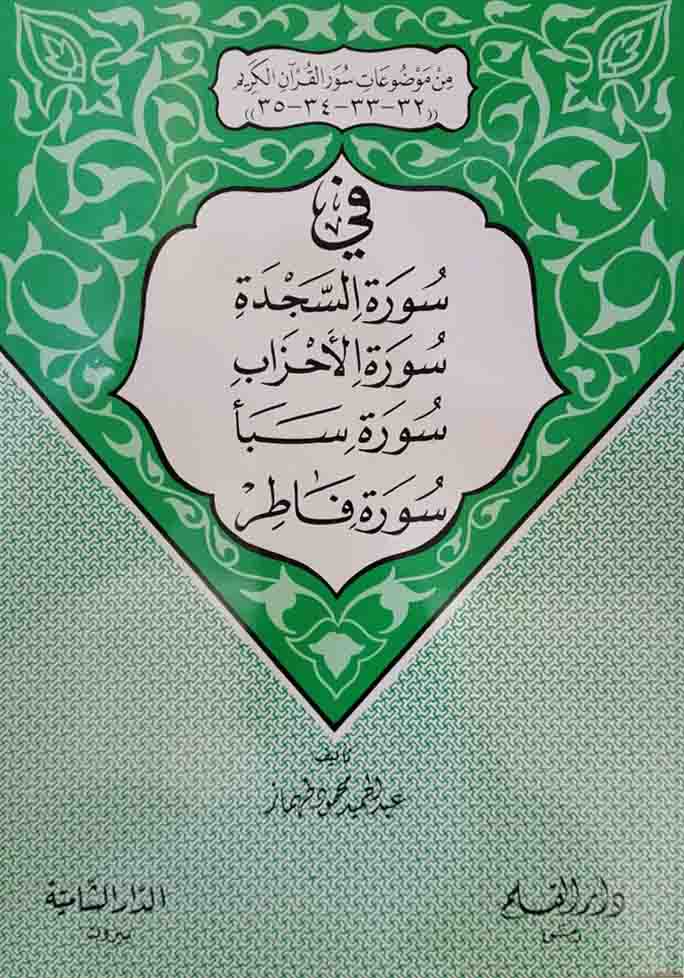 مِنْ مَوْضُوعَاتِ سُوَرِ القُرْآنِ الكَرِيمِ
((٣٢-٣٣-٣٤-٣٥))
في
سُورَةِ السَّجْدَةِ
سُورَةِ الأَحْزَابِ
سُورَةِ سَبَأ
سُورَةِ فَاطِرْ
تأليف
عبد الحميد محمود طهماز
دار القلم
دمشق
الدّار الشّاميّة
بيروت